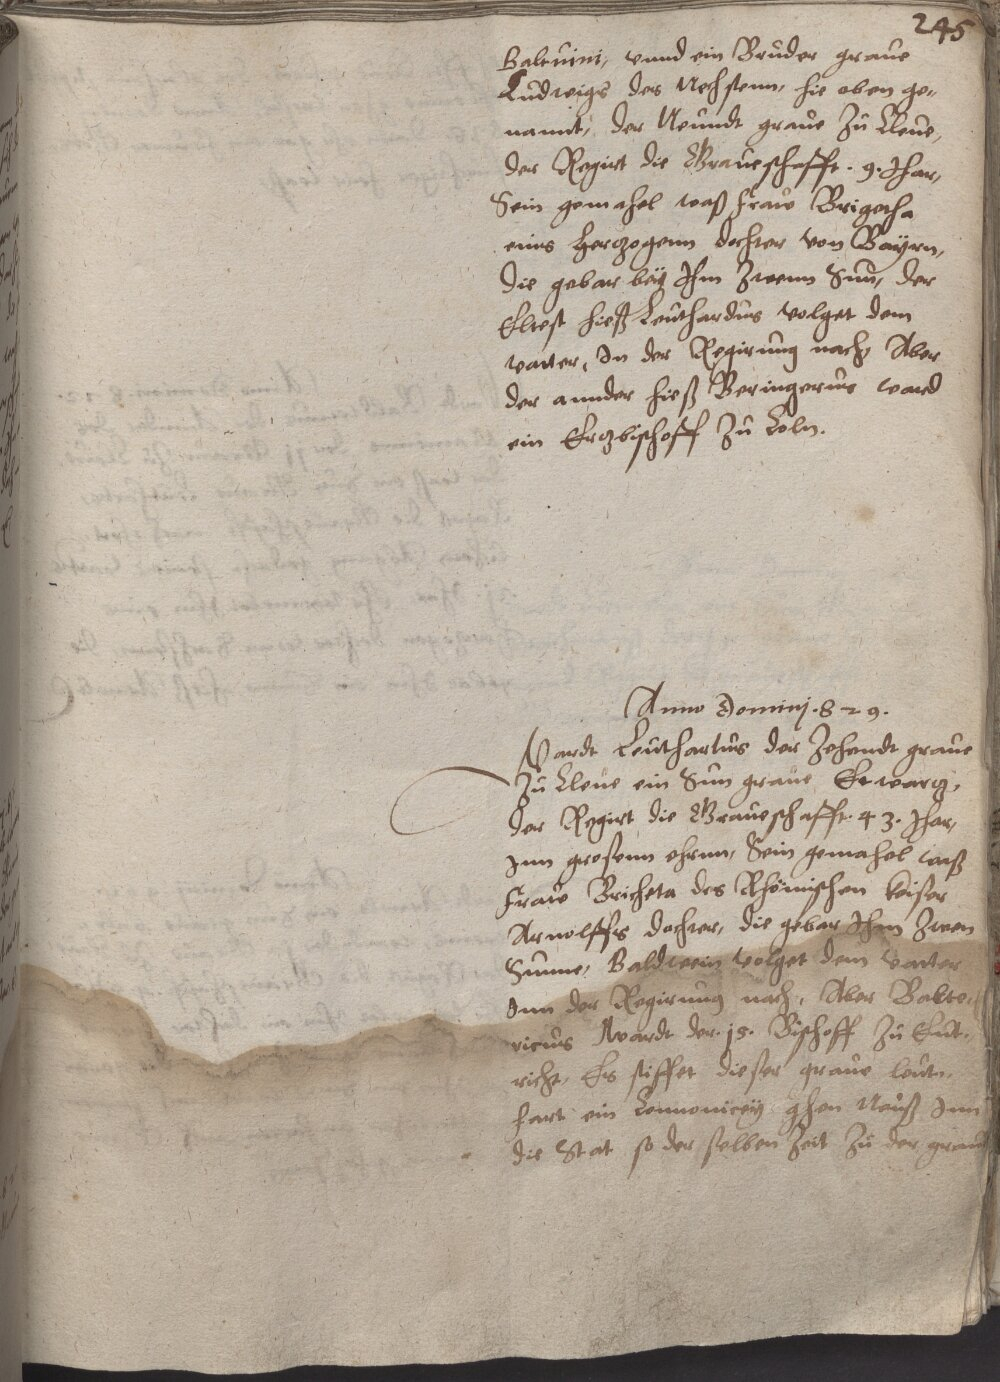 245
Balduini, vnnd ein Bruder graue
Ludwigs des Nechstenn, hie oben ge-
nannt, der Neundt graue Zu Cleue,
der Regirt die Graueschafft . 9. Jhar,
Sein gemahel waß fraw Brigetha
eins Hertzogenn dochter von Bayrn,
die gebar bey Jhm Zwenn Sun, der
Eltest hieß Leuthardus volget dem
vatter, In der Regirung nach, Aber
der annder hieß Beringerus ward
ein Ertzbischoff Zu Coln.
Anno Dominj . 829.
Wardt Leuthartus der Zehendt graue
Zu Cleue ein Sun graue Ewartz,
der Regirt die Graueschafft . 43. Jhar,
Jnn grosenn ehrnn, Sein gemahel waß
fraw Bricheta des Rhömischen Keiser
Arnolffs dochter, die gebar Jhm Zwen
Sunne, Baldwein volget dem vatter
Jnn der Regirung nach, Aber Balte-
ricus Wardt der . 15. Bischoff Zu Eut-
richt, Es stifftet dieser graue Leut-
hart ein Cannonicey ghen Neuß Jnn
die Stat so der selben Zeit Zu der grau